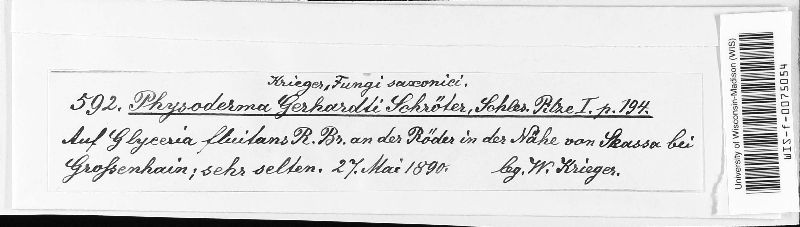 Krieger, Fungi saxonici.
592. Physoderma Gerhardti Schröter, Schles. Pilze I. p. 194.
Auf Glyceria fluitans R. Br. an der Röder in der Nähe von Skassa bei
Großenhain; sehr selten. 27. Mai 1890. leg. W. Krieger.
University of Wisconsin-Madison (WIS)
WIS-f-0075054